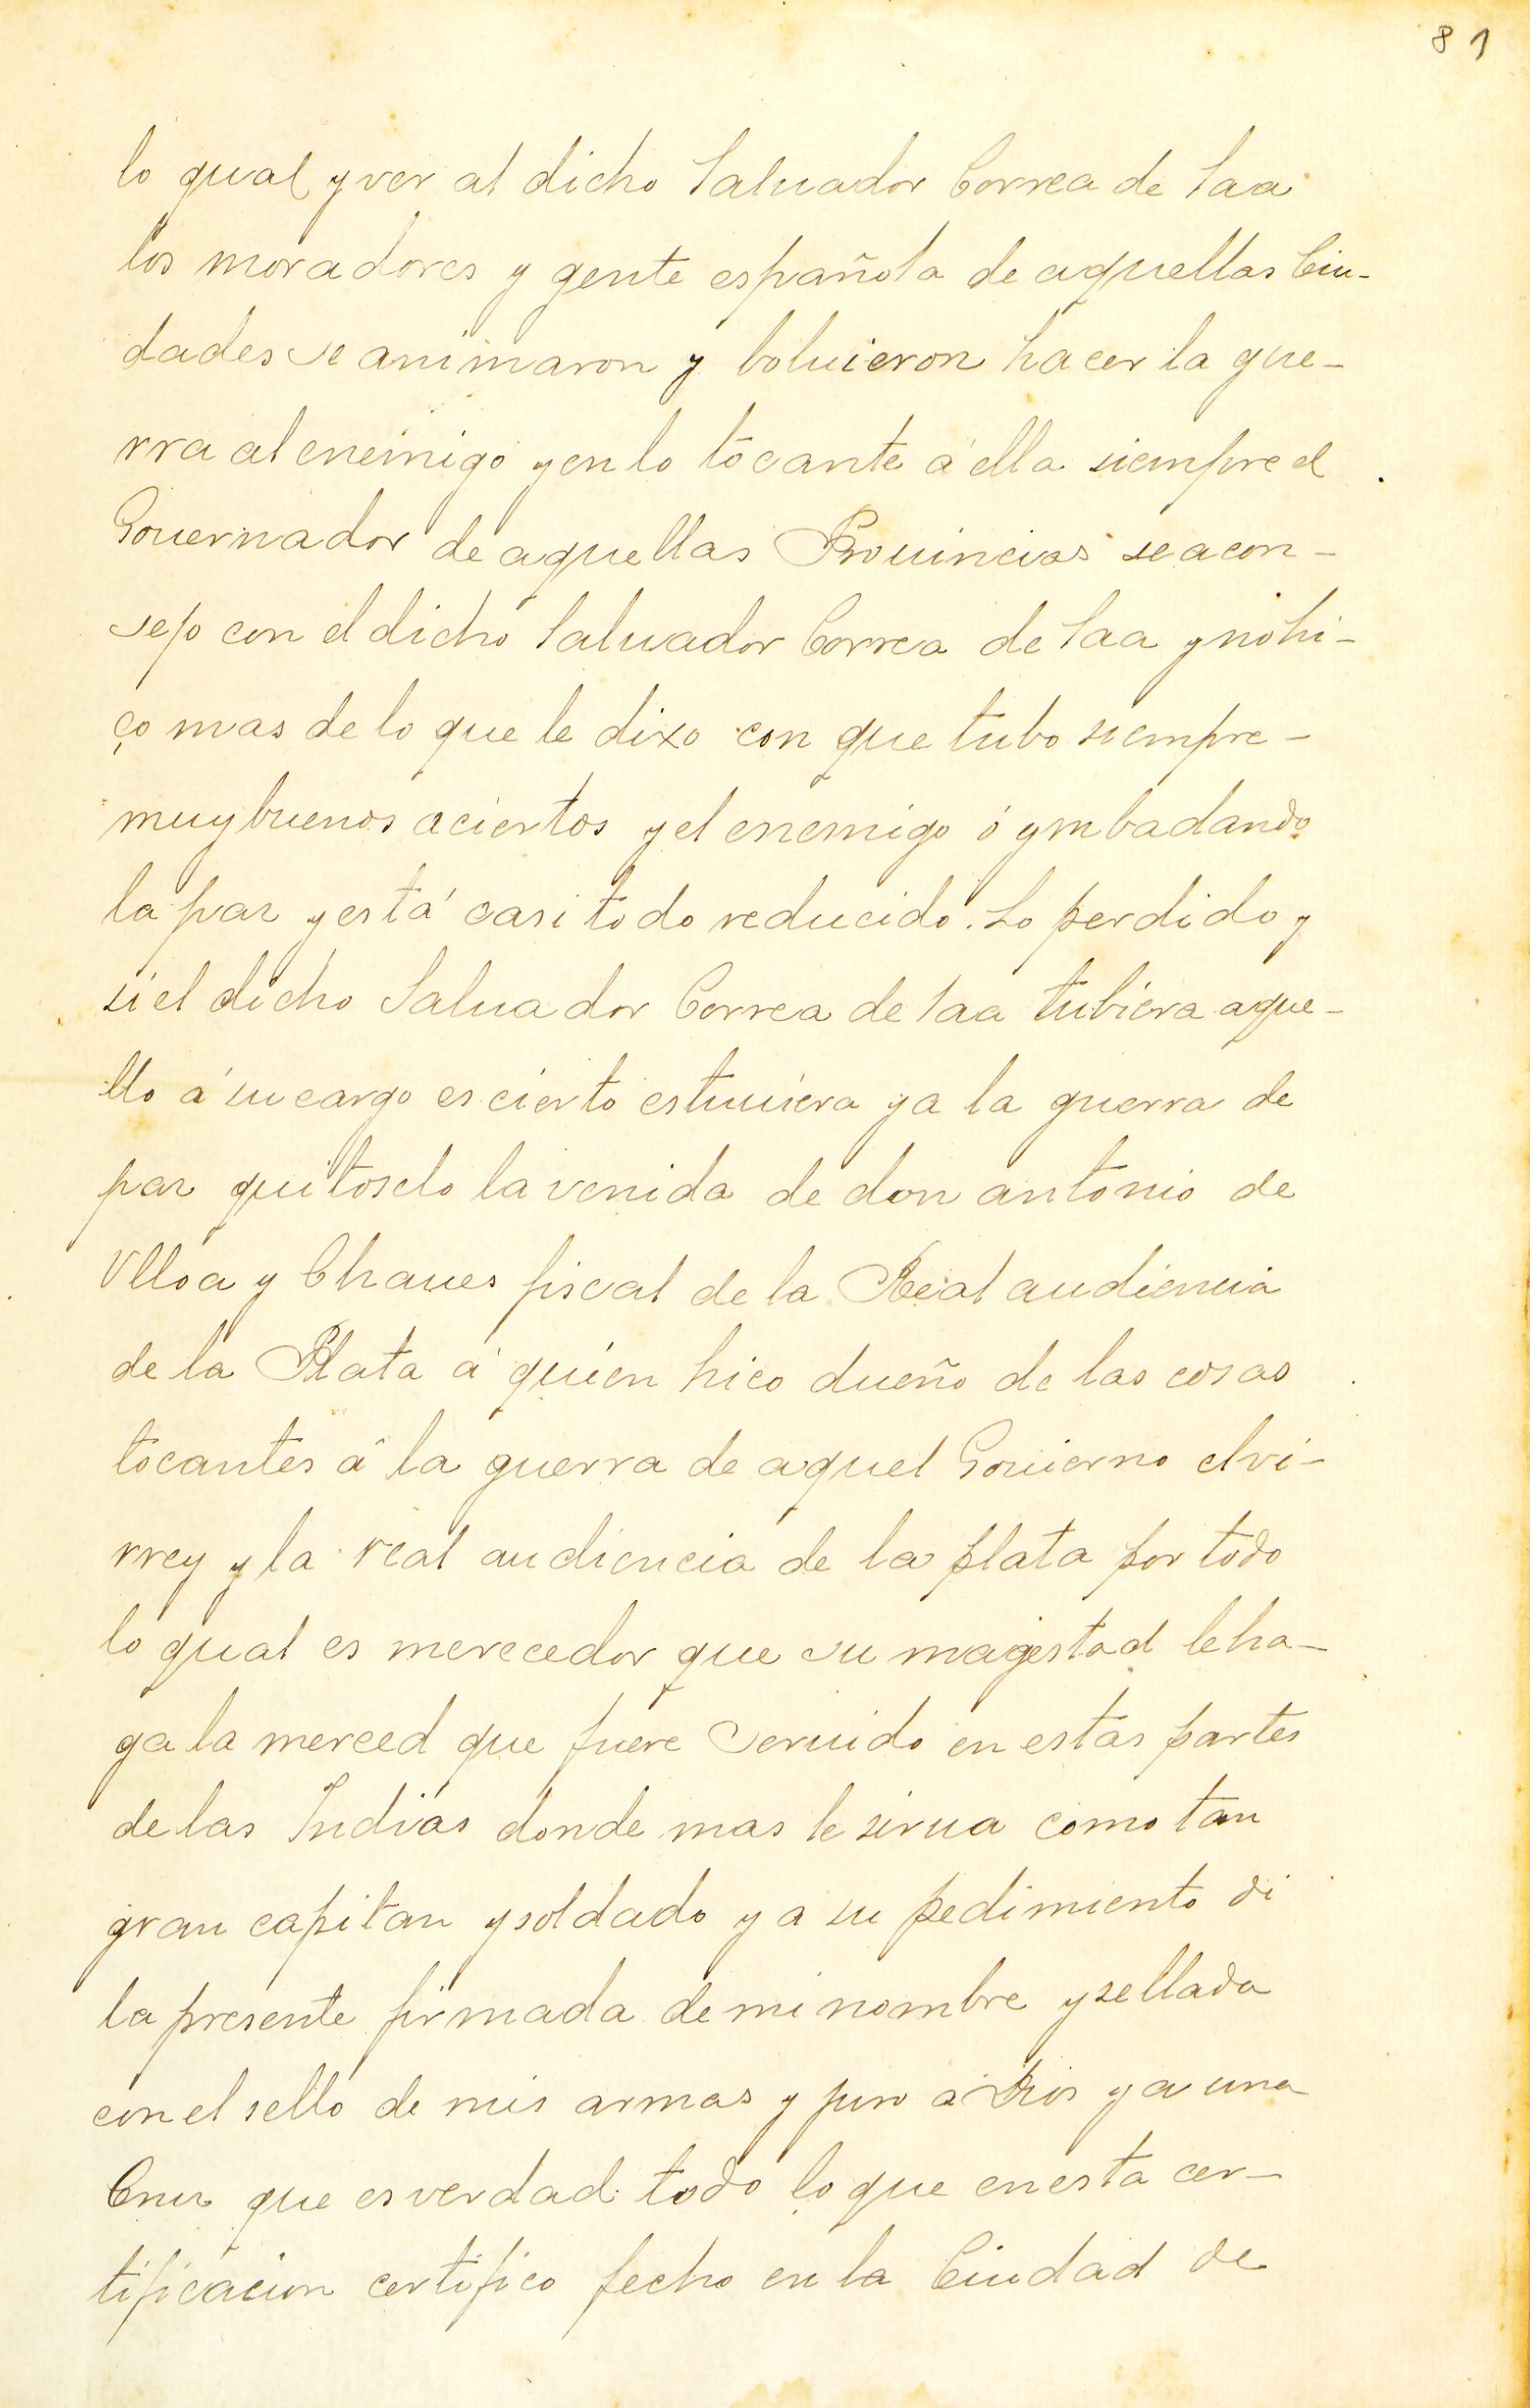 81
lo qual y ver al dicho Saluador Correa de Saa
los moradores y gente española de aquellas Ciu-
dades se animaron y boluieron hacer la gue-
rra al enemigo y en lo tocante á ella siempre el
Gouernador de aquellas Prouincias se acon-
sejo con el dicho Saluador Correa de Saa y no hi-
ço mas de lo que le dixo con que tubo siempre-
muy buenos aciertos y el enemigo ó ymbadando
la paz y está casi todo reducido. Lo perdido y
si el dicho Saluador Correa de Saa tubiera aque-
llo á su cargo es cierto estuuiera ya la guerra de
paz quitoselo la venida de don antonio de
Ulloa y Chaues fiscal de la Real audiencia
de la Plata á quien hico dueño de las cosas
tocantes á la guerra de aquel Gouierno el vi-
rrey y la real audiencia de la plata por todo
lo qual es merecedor que su magestad le ha-
ga la merced que fuere seruido en estas partes
de las Indias donde mas le sirua como tan
gran capitan y soldado y a su pedimiento di
la presente firmada de mi nombre y sellada
con el sello de mis armas y juro a Dios y a una
Cruz que es verdad todo lo que en esta cer-
tificacion certifico fecho en la Ciudad de